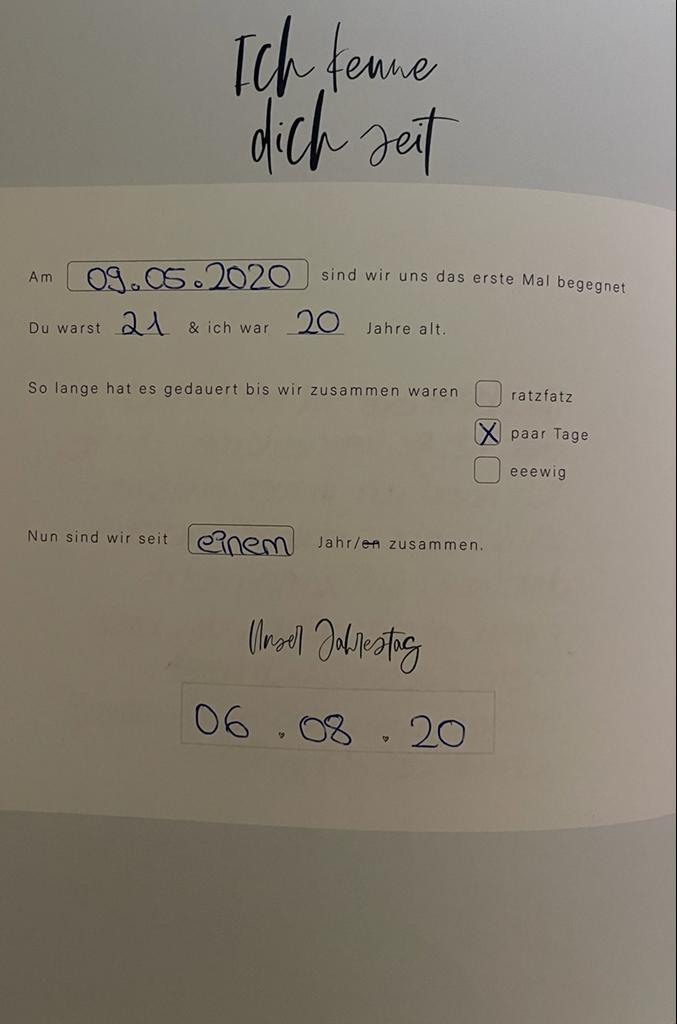 Ich kenne
dich seit
Am 09.05.2020 sind wir uns das erste Mal begegnet
Du warst 21 & ich war 20 Jahre alt.
So lange hat es gedauert bis wir zusammen waren ratzfatz
X paar Tage
eeewig
Nun sind wir seit einem Jahr/en zusammen.
Unser Jahrestag
06.08.20